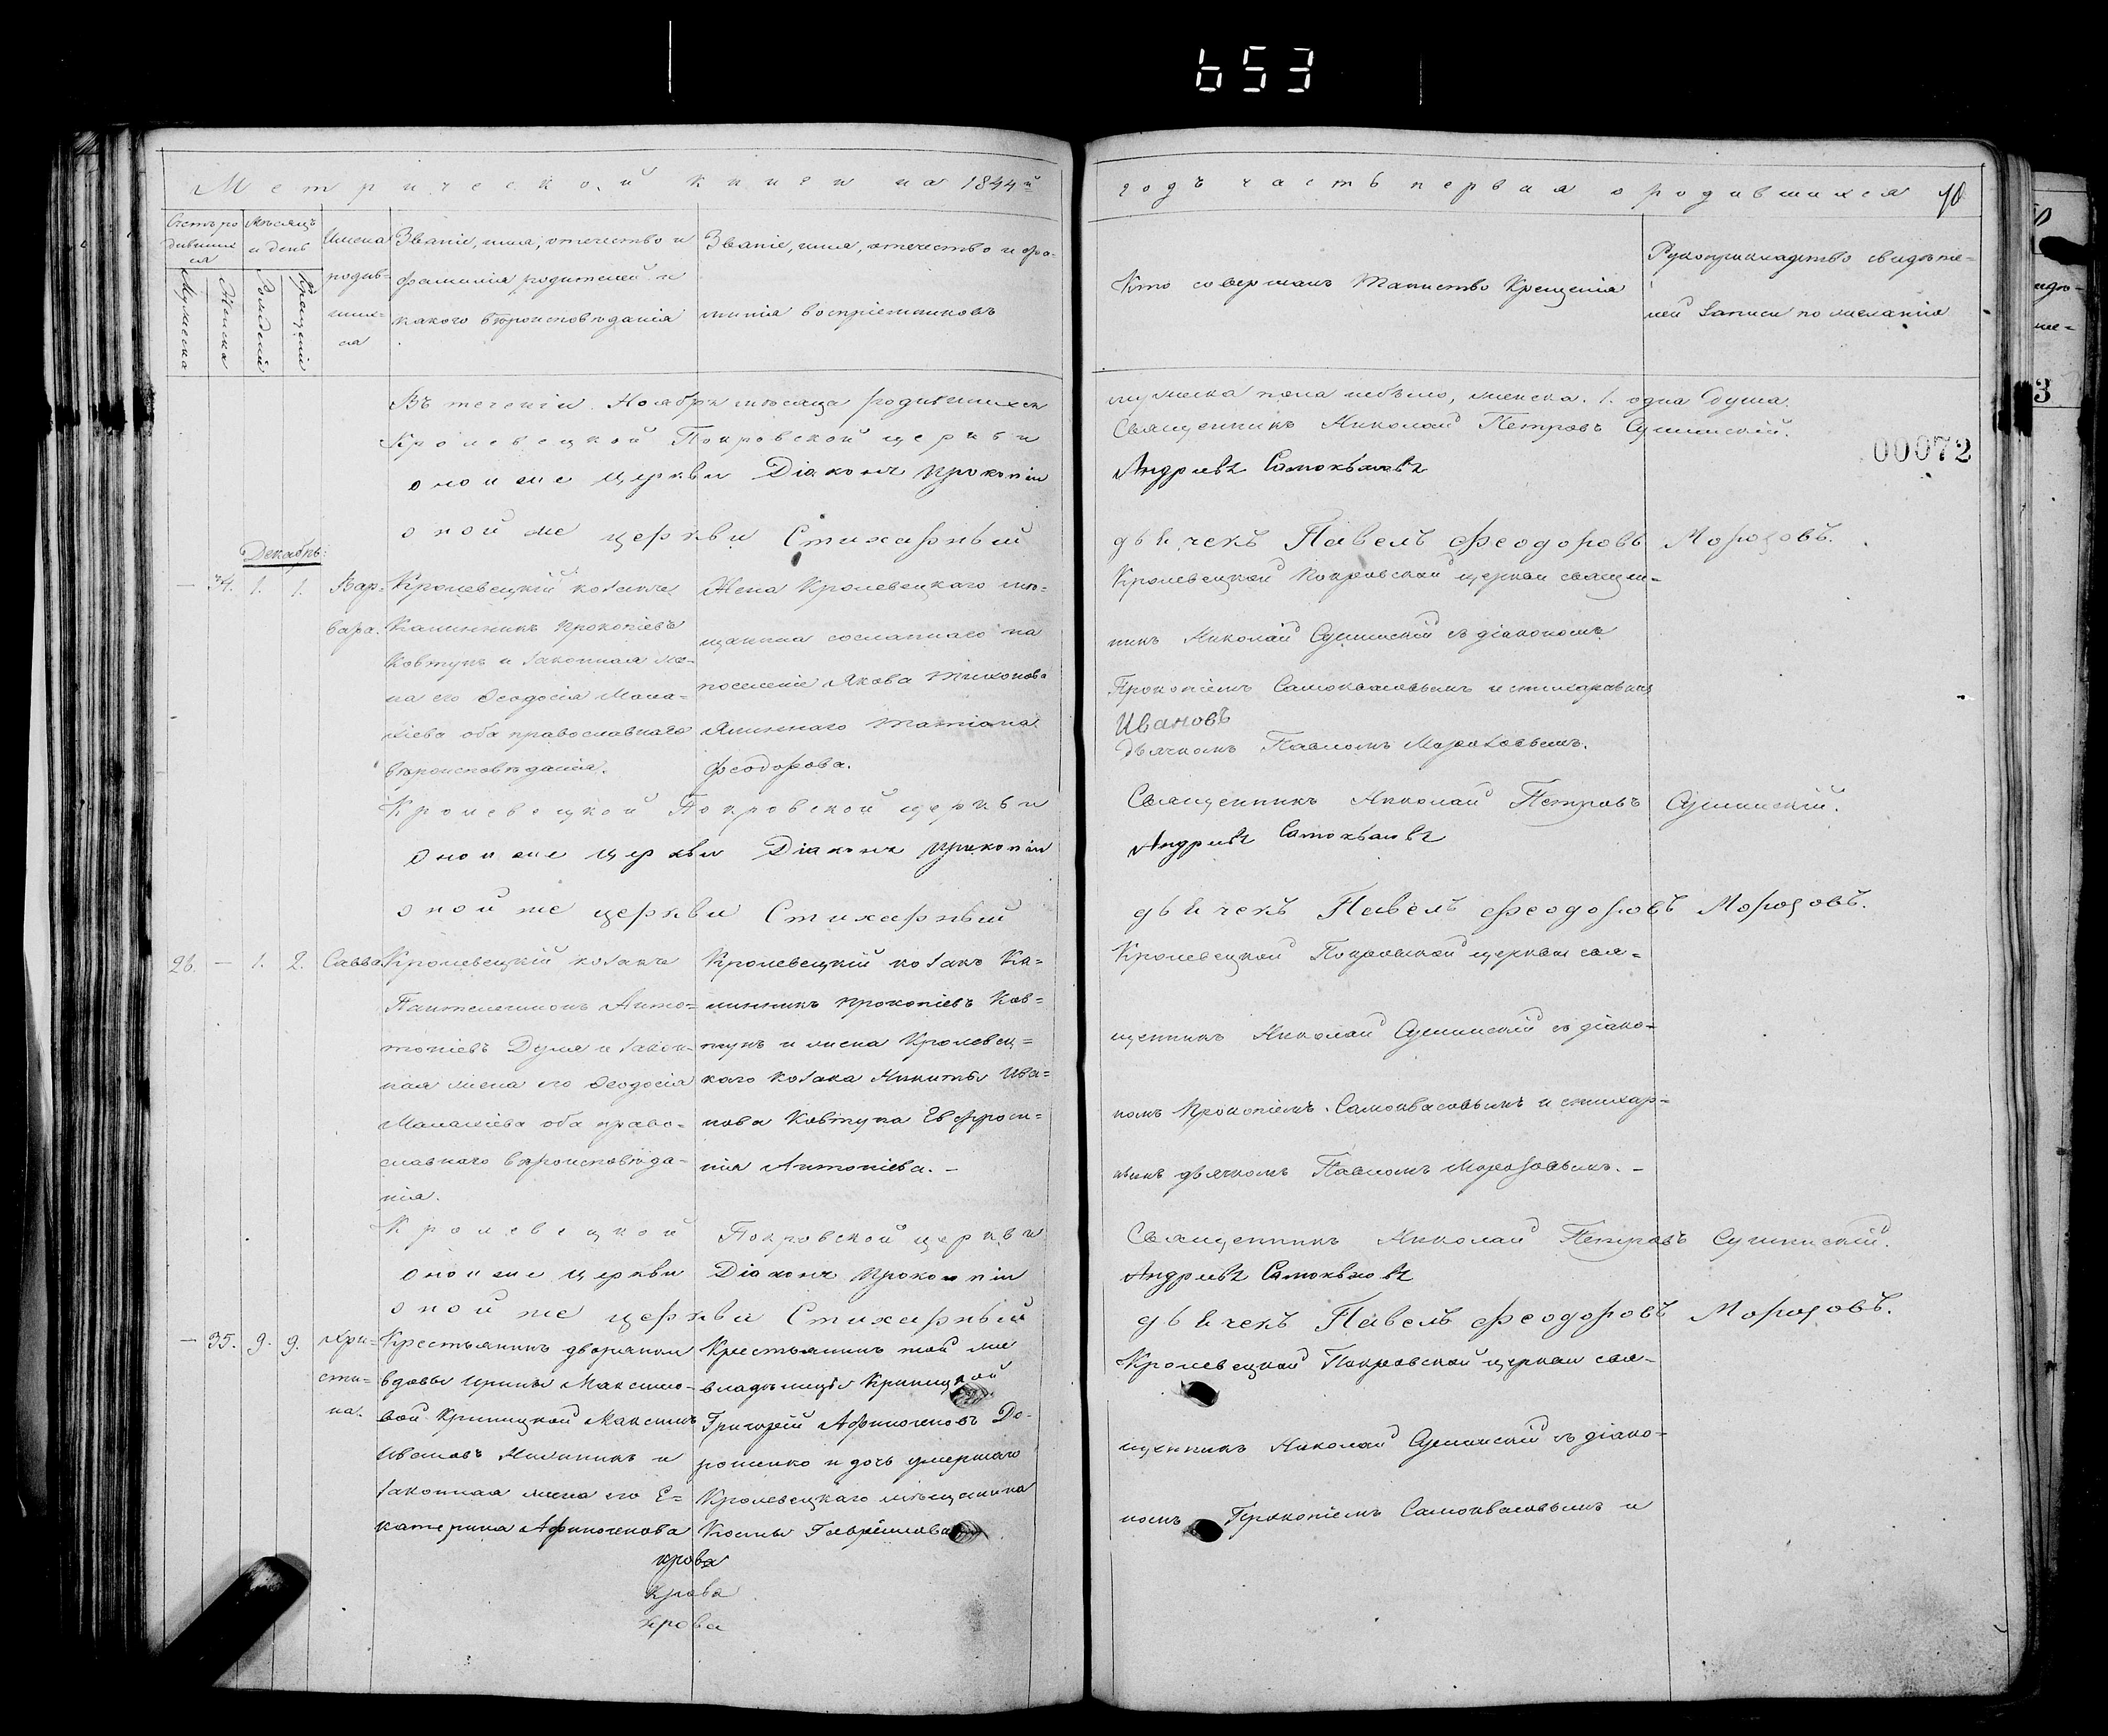 653
Метрической книги на 1844й
годъ часть первая о родившихся
Счетъ ро
дивших
ся
Мѣсяцъ
и день
Мужеска
Женска
Рожденія
Крещенія
Имена
родив-
ших-
ся
Званіе, имя, отечество и
фамилія родителей и
какого вѣроисповѣданія
Званіе, имя, отечество и фа-
милія воспріемниковъ
Кто совершалъ таинство Крещенія
Рукоприкладство свидѣте-
лей записи по желанію
00072
Въ теченіи Ноября мѣсяца родившихся
мужеска пола небыло, женска. 1. одна душа.
Кролевецкой Покровской церкви
Священникъ Николай Петровъ
оной же церкви Діаконъ Прокопій
Андреевъ Самоквасовъ
оной же церкви Стихарный
дьячекъ Павелъ Феодоровъ Морозовъ.
Декабрь:
— 34. 1. 1.
Вар-
вара.
Кролевецкій козакъ
Калинникъ Прокопіевъ
Ковтунъ и законная же-
на его Феодосія Мала-
хіева оба православнаго
вѣроисповѣданія.
Жена Кролевецкаго мѣ-
щанина сосланнаго на
поселеніе Якова Тихонова
Татіана
Феодорова.
Кролевецкой Покровской церкви священ-
никъ Николай съ діакономъ
Прокопіемъ Самоквасовымъ и стихарнымъ
Ивановъ
дьячкомъ Павломъ Морозовымъ.
Кролевецкой Покровской церкви
Священникъ Николай Петровъ
оной же церкви Діаконъ Прокопій
Андреевъ Самоквасовъ
оной же церкви Стихарный
дьячекъ Павелъ Феодоровъ Морозовъ.
26. — 1. 2.
Савва
Кролевецкій козакъ
Пантелеимонъ Анто-
ніевъ и закон-
ная жена его Феодосія
Малахіева оба право-
славнаго вѣроисповѣда-
нія.
Кролевецкій козакъ Ка-
линникъ Прокопіевъ Ков-
тунъ и жена Кролевец-
каго козака Никиты Ива-
нова Ковтуна Евфроси-
нія Антоніева. –
Кролевецкой Покровской церкви свя-
щенникъ Николай съ діако-
номъ Прокопіемъ Самоквасовымъ и стихар-
нымъ дьячкомъ Павломъ Морозовымъ. –
Кролевецкой Покровской церкви
Священникъ Николай Петровъ
оной же церкви Діаконъ Прокопій
Андреевъ Самоквасовъ
оной же церкви Стихарный
дьячекъ Павелъ Феодоровъ Морозовъ.
— 35. 9. 9.
Хри-
сти-
на.
Крестьянинъ дворянки
вдовы Ирины Максимо-
вой Криницкой Максимъ
Ивановъ и
законная жена его Е-
катерина Афиногенова
Крестьянинъ той же
владѣлицы Криницкой
Григорій Афиногеновъ До-
рошенко и дочь умершаго
Кролевецкаго мѣщанина
Космы Гавріилова
Кролевецкой Покровской церкви свя-
щенникъ Николай съ діако-
номъ Прокопіемъ Самоквасовымъ и
крова
крова
крова